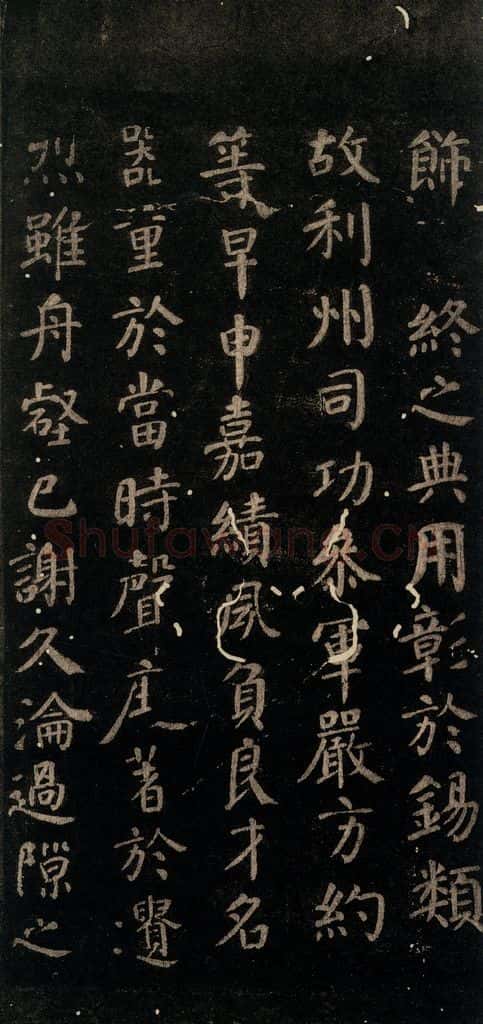 飾 終之典用彰於錫類
故利州司功叅軍嚴方約
等早申嘉績夙負良才名
器重於當時聲塵著於遺
烈雖舟壑已謝久淪過隙之
Shufawang.cn